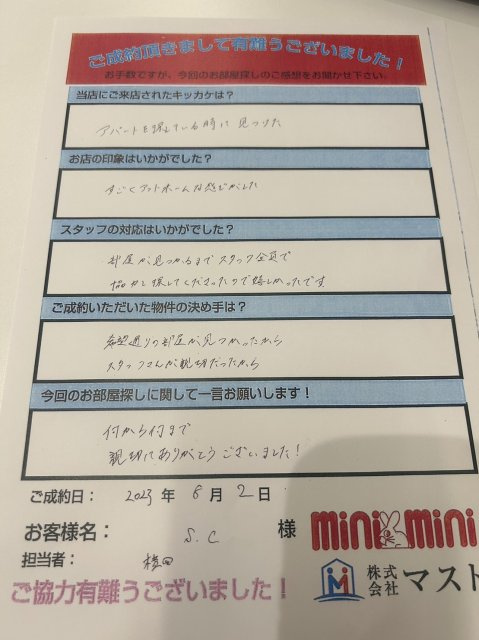 ご成約頂きまして有難うございました！
お手数ですが、今回のお部屋探しのご感想をお聞かせ下さい。
当店にご来店されたキッカケは？
アパートを探している時に見つけた
お店の印象はいかがでした？
すごくアットホームな感じがした
スタッフの対応はいかがでした？
部屋が見つかるまでスタッフ全員で
協力し探してくださったので嬉しかったです
ご成約いただいた物件の決め手は？
希望通りの部屋が見つかったから
スタッフさんが親切だったから
今回のお部屋探しに関して一言お願いします！
何から何まで
親切にありがとうございました！
ご成約日： 2023 年 6 月 2 日
お客様名： S.C 様
mini mini
担当者：
株式会社 マスト
ご協力有難うございました！